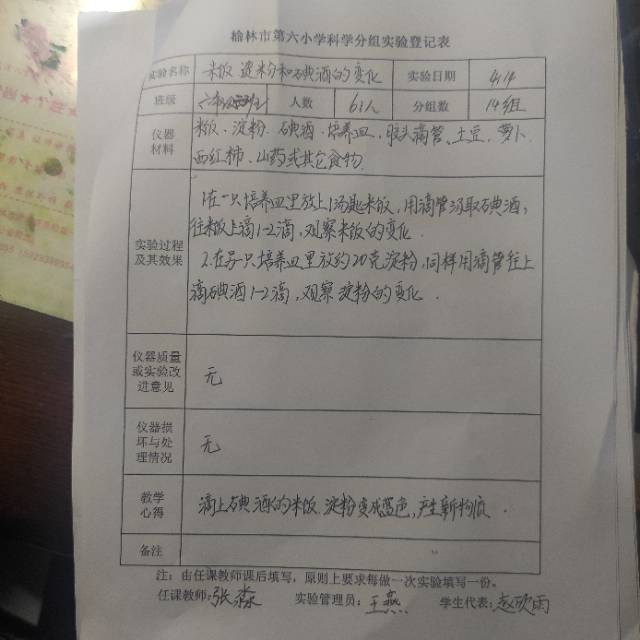 榆林市第六小学科学分组实验登记表
实验名称 米饭 淀粉和碘酒的变化 实验日期 4.14
班级 六年级 人数 61人 分组数 14组
仪器材料 米饭、淀粉、碘酒、培养皿、胶头滴管、土豆、萝卜
西红柿、山药或其它食物.
实验过程及其效果
1.在一只培养皿里放上1汤匙米饭,用滴管吸取碘酒,
往米饭上滴1-2滴,观察米饭的变化.
2.在另一只培养皿里放约20克淀粉,同样用滴管往上
滴碘酒1-2滴,观察淀粉的变化.
仪器质量或实验改进意见 无
仪器损坏与处理情况 无
教学心得 滴上碘酒的米饭、淀粉变成蓝色,产生新物质.
备注
注:由任课教师课后填写,原则上要求每做一次实验填写一份。
任课教师:张淼 实验管理员:王燕 学生代表:赵欧雨